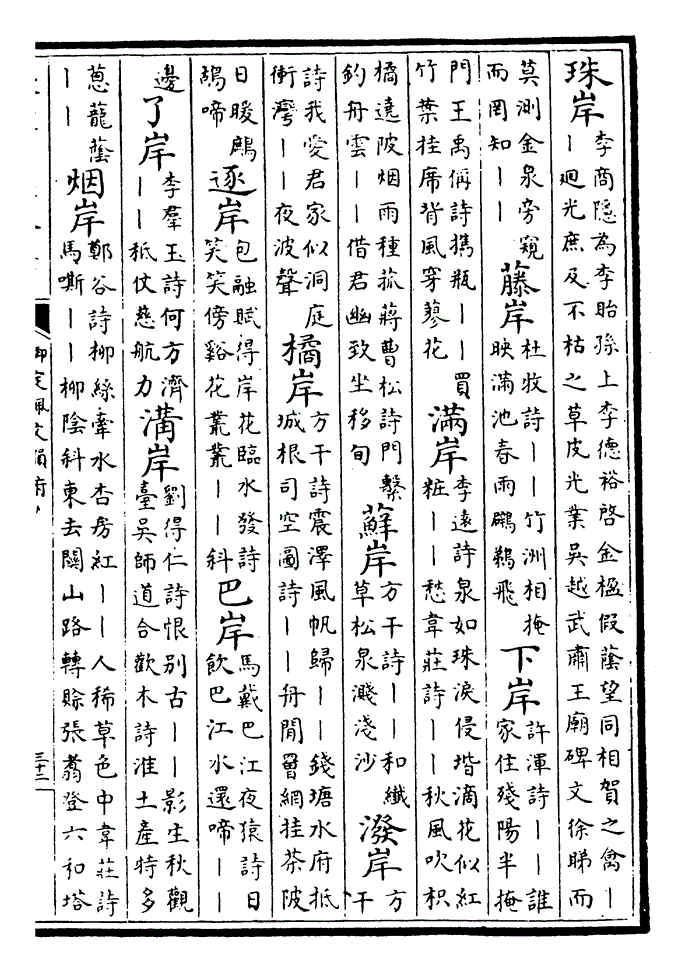 珠岸李商隱為李貽孫上李德裕啓金榲假蔭望同相賀之禽丨丨迴光庶及不枯之草皮光業吳越武肅王廟碑文徐睇而
莫測金泉旁窺而罔知丨丨藤岸杜牧詩丨丨竹洲相掩映滿池春雨鸊鵜飛下岸許渾詩丨丨誰家住殘陽半掩
門王禹偁詩攜瓶丨丨買竹葉挂席背風穿蓼花滿岸李遠詩泉如珠淚侵堦滴花似紅粧丨丨愁韋莊詩丨丨秋風吹枳
橘遶陂烟雨種菰蔣曹松詩門繫釣舟雲丨丨借君幽致坐移旬蘚岸方干詩丨丨和纖草松泉濺淺沙潑岸方干
詩我愛君家似洞庭衝灣丨丨夜波聲橘岸方干詩震澤風帆歸丨丨錢塘水府抵城根司空圖詩丨丨舟閒罾網挂茶陂
日暖鷓鴣啼逐岸包融賦得岸花臨水發詩笑笑傍谿花叢叢丨丨斜巴岸馬戴巴江夜猿詩日飲巴江水還啼丨丨
邊了岸李羣玉詩何方濟丨丨秪仗慈航力溝岸劉得仁詩恨別古丨丨影生秋觀臺吳師道合歡木詩淮土產特多
蔥蘢蔭丨丨烟岸鄭谷詩柳絲牽水杏房紅丨丨人稀草色中韋莊詩馬嘶丨丨柳陰斜東去關山路轉賒張翥登六和塔
御定佩文韻府
三十二